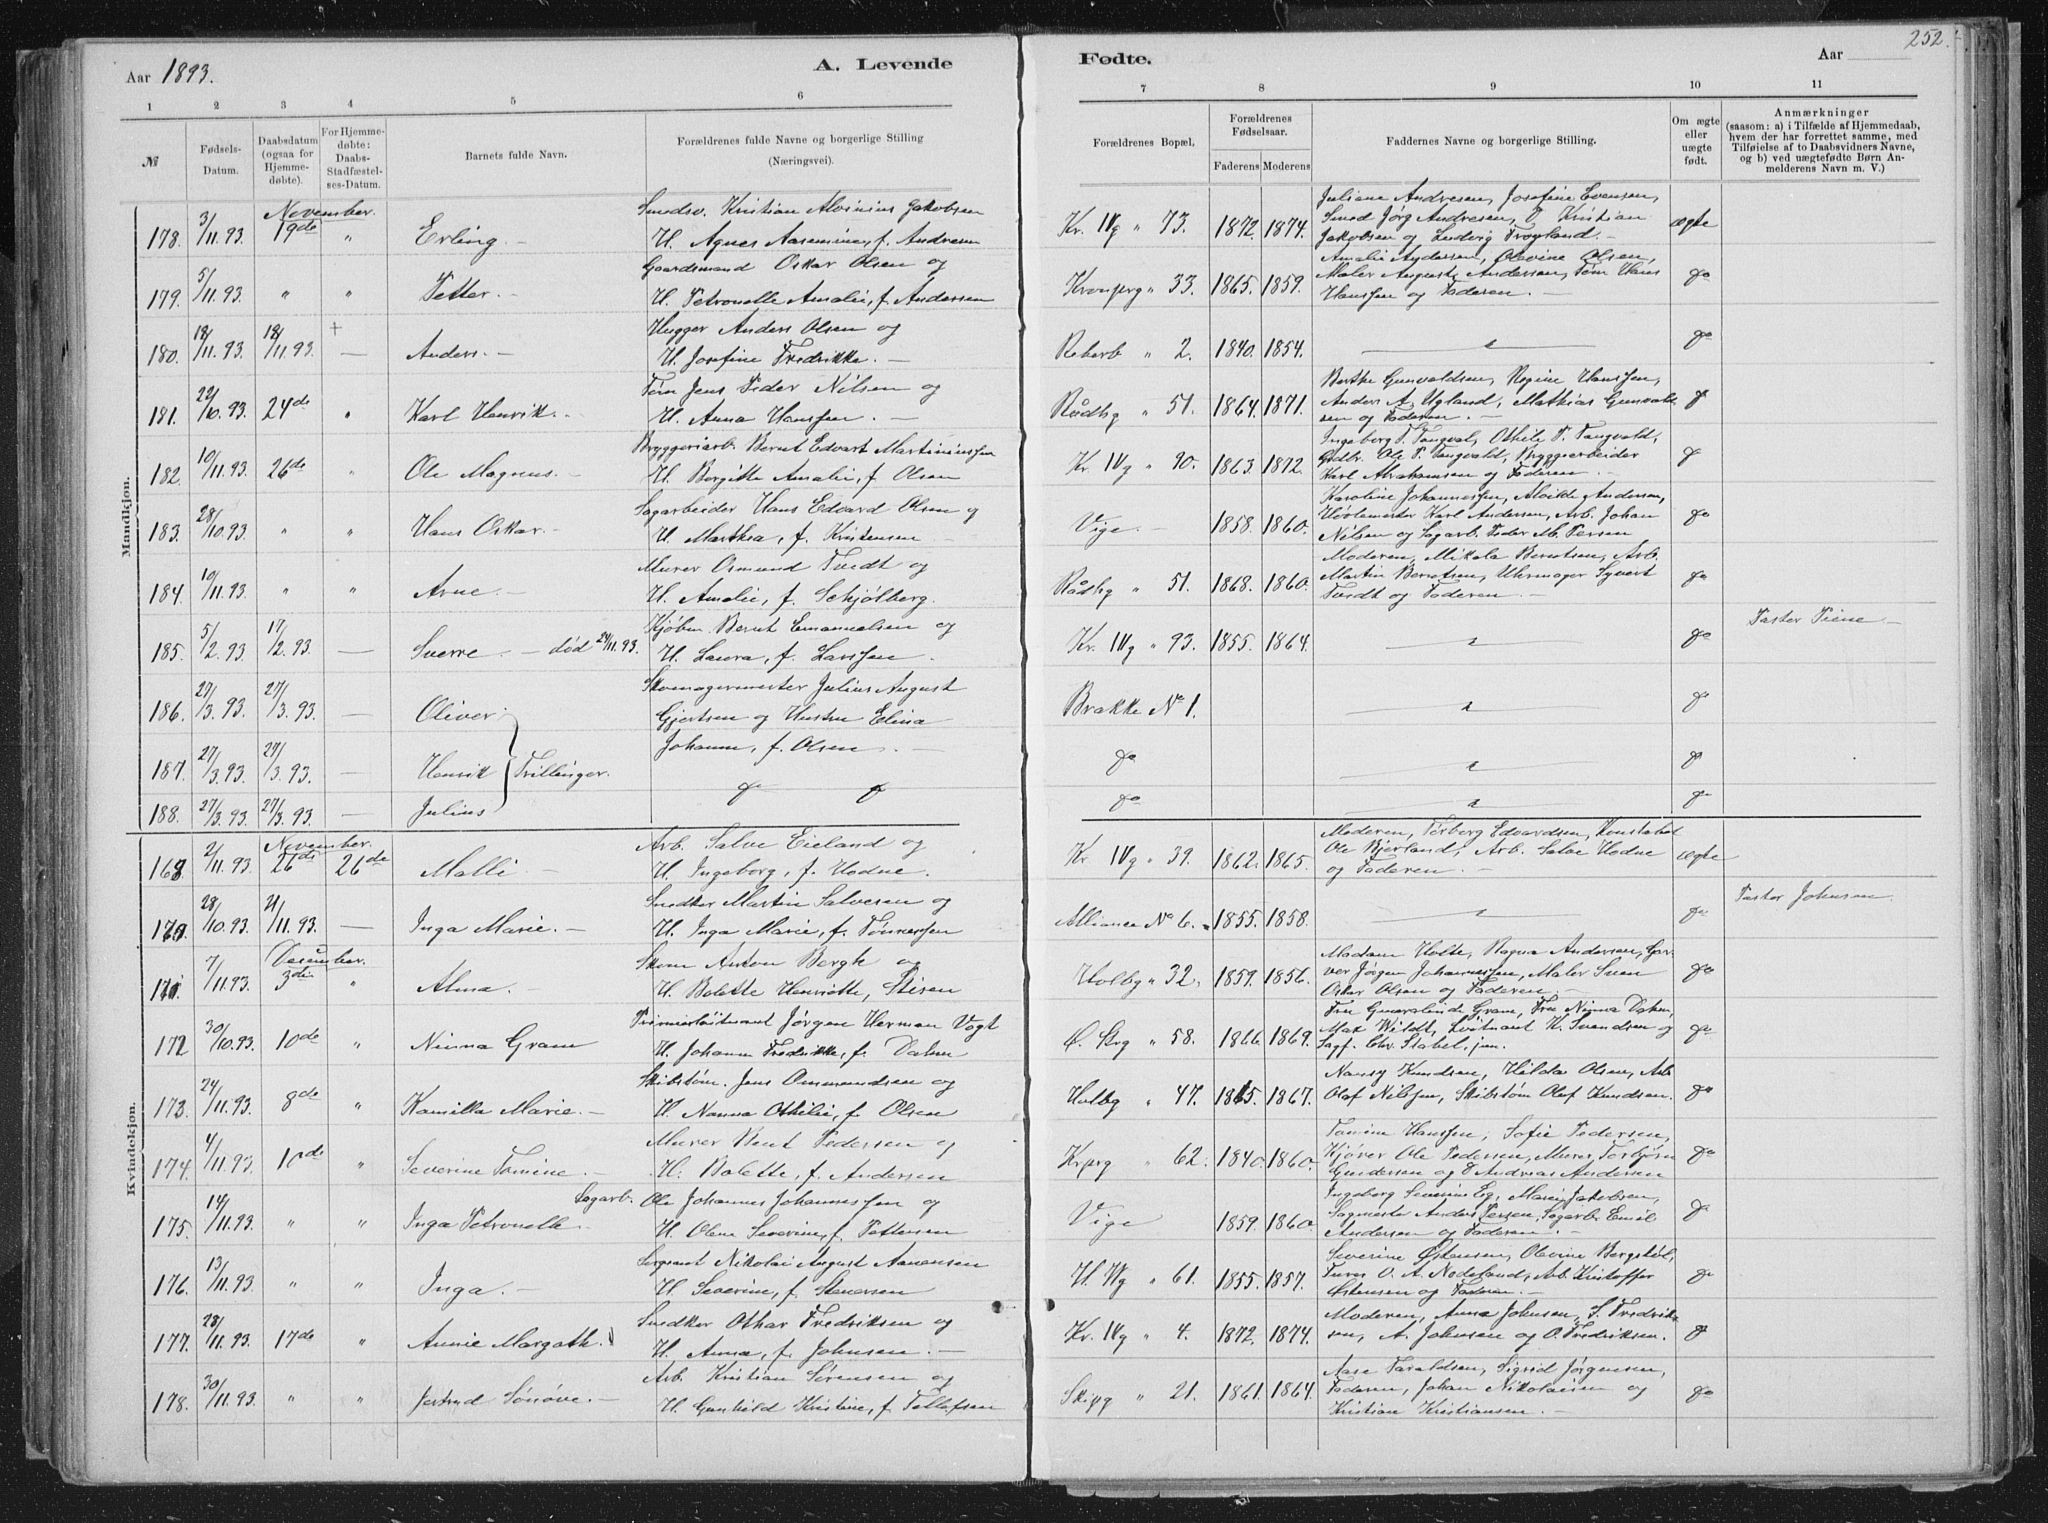 Aar 1893.
A. Levende
Fødte.
Aar
252.
1 2 3 4 5 6 7 8 9 10 11
№
Fødsels-Datum.
Daabsdatum (ogsaa for Hjemmedøbte).
For Hjemmedøbte: Daabs-Stadfæstelses-Datum.
Barnets fulde Navn.
Forældrenes fulde Navne og borgerlige Stilling (Næringsvei).
Forældrenes Bopæl,
Forældrenes Fødselsaar.
Faderens Moderens
Faddernes Navne og borgerlige Stilling.
Om ægte eller uægte født.
Anmærkninger (saasom: a) i Tilfælde af Hjemmedaab, hvem der har forrettet samme, med Tilføielse af to Daabsvidners Navne, og b) ved uægtefødte Børn Anmelderens Navn m. V.)
Mandkjøn.
November.
178. 3/11.93. 19de " Erling. —
Smedsv. Kristian Alvinius Jakobsen
H. Agnes Aasemine, f. Andresen
Kr. IVg " 73. 1872. 1874.
Juliane Andresen, Josefine Evensen,
Smed Jørg Andresen, Kristian
Jakobsen og Ludvig Frøyland. —
ægte
179. 5/11.93. " " Petter. —
Gaardsmand Oskar Olsen og
H. Petronelle Amalie, f. Andersen
Kronprg " 33. 1865. 1859.
Amalie Andersen, Olevine Olsen,
Maler August Andersen, Tøm. Hans
Hanssen og Faderen. —
do
180. 18/11.93. 18/11.93. — Anders. —
Hugger Anders Olsen og
H. Josefine Fredrikke. —
Reberb " 2. 1840. 1854.
do
181. 22/10.93. 24de " Karl Henrik. —
Tøm Jens Peder Nilsen og
H. Anna Hanssen. —
Rådhg " 51. 1864. 1871.
Berthe Gunvaldsen, Regine Hanssen,
Anders A. Ugland, Mathias Gunvald-
sen og Faderen. —
do
182. 10/11.93. 26de " Ole Magnus. —
Bryggeriarb. Bernt Edvart Martiniussen
H. Bergitte Amalie, f. Olsen
Kr. IVg " 90. 1863. 1872
Ingeborg T. Tangval, Othile T. Tangvald,
Ole T. Tangvald, Bryggeriarbeider
Karl Abrahamsen og Faderen. —
do
183. 28/10.93. " " Hans Oskar. —
Sagarbeider Hans Edvard Olsen og
H. Marthea, f. Kristensen —
Vige. — 1858. 1860.
Karoline Johannessen, Alvilde Andersen,
Høvlemester Karl Andersen, Arb. Johan
Nilsen og Sagarb. Peder M. Persen
do
184. 10/11.93. " " Arne. —
Murer Osmund Tvedt og
H. Amalie, f. Schjølberg.
Rådhg " 51. 1868. 1860.
Moderen, Mikala Berntsen, Arb.
Martin Berntsen, Uhrmager Syvert
Tvedt og Faderen. —
do
185. 5/2.93. 17/2.93. — Sverre. — død 24/11.93.
Kjøbm. Bernt Emanuelsen og
H. Laura, f. Larssen.
Kr. IVg " 93. 1855. 1864.
do
Pastor Tiene —
186. 27/3.93. 27/3.93. — Oliver.
Skomagermester Julius August
Gjertsen og Hustru Elina
Johanne, f. Olsen. —
Brække No 1.
do
187. 27/3.93. 27/3.93. — Henrik Trillinger.
do do
do
do
188. 27/3.93. 27/3.93. — Julius
do
do
Kvindekjøn.
November.
169 2/11.93. 26de 26de Malli. —
Arb. Salve Eieland og
H. Ingeborg, f. Hodne.
Kr. IVg " 39. 1862. 1865.
Moderen, Torborg Edvardsen, Konstabel
Ole Bjerland, Arb. Salve Hodne
og Faderen. —
ægte
170. 28/10.93. 21/11.93. — Inga Marie. —
Snedker Martin Salvesen og
H. Inga Marie, f. Tønnessen
Alliance No 6. 1855. 1858.
do
Pastor Johnsen
December.
171. 7/11.93. 3die " Alma. —
Skom Anton Bergh og
H. Bolette Henriette, Stisen
Holbg " 32. 1859. 1856.
Madam Holte, Ragna Andersen, Gar-
ver Jørgen Johannessen, Maler Sven
Oskar Olsen og Faderen. —
do
172 30/10.93. 10de " Ninna Gram
Premierløitnant Jørgen Herman Vogt
H. Johanne Fredrikke, f. Dahm
Ø. Stg " 58. 1866. 1869.
Fru Gram, Fru Ninna Dahm,
Max Wildt, Løitnant K. Svendsen og
Sagf. Chr. Stabel, jun.
do
173. 24/11.93. 8de " Kamilla Marie. —
Skibstøm. Jens Ommundsen og
H. Nanna Othilie, f. Olsen
Holbg " 47. 1865. 1867.
Nansy Knudsen, Hilda Olsen, Arb.
Olaf Nilssen, Skibstøm Oluf Knudsen.
do
174. 4/11.93. 10de " Severine Tomine. —
Murer Bent Pedersen og
H. Bolette, f. Andersen
Krprg " 62. 1840. 1860.
Tomine Hanssen, Sofie Pedersen,
Kjører Ole Pedersen, Murer Torbjørn
Gundersen og Andreas Andersen
do
175. 14/11.93. " " Inga Petronelle —
Sagarb. Ole Johannes Johannessen og
H. Olene Severine, f. Pettersen
Vige 1859. 1860.
Ingeborg Severine Eg, Marie Jakobsen,
Sagmester Anders Persen, Sagarb. Emil
Andersen og Faderen. —
do
176. 13/11.93. " " Inga. —
Sergeant Nikolai August Aanensen
H. Severine, f. Stenersen
H. Wg " 61. 1855. 1857.
Severine Østensen, Olevine Bergstøl,
Furer O. A. Nodeland, Arb. Kristoffer
Østensen og Faderen. —
do
177. 28/11.93. 17de " Annie Margoth.
Snedker Othar Fredriksen og
H. Anna, f. Johnsen. —
Kr. IVg " 4. 1872. 1874.
Moderen, Anna Johnsen, S. Fredrik-
sen, A. Johnsen og O. Fredriksen.
do
178. 30/11.93. " " Jertrud Sønøve. —
Arb. Kristian Sørensen og
H. Gunhild Kristine, f. Tellefsen
Skipg " 21. 1861. 1864.
Aase Taraldsen, Sigrid Jørgensen,
Faderen, Johan Nikolaisen og
Kristian Kristiansen. —
do